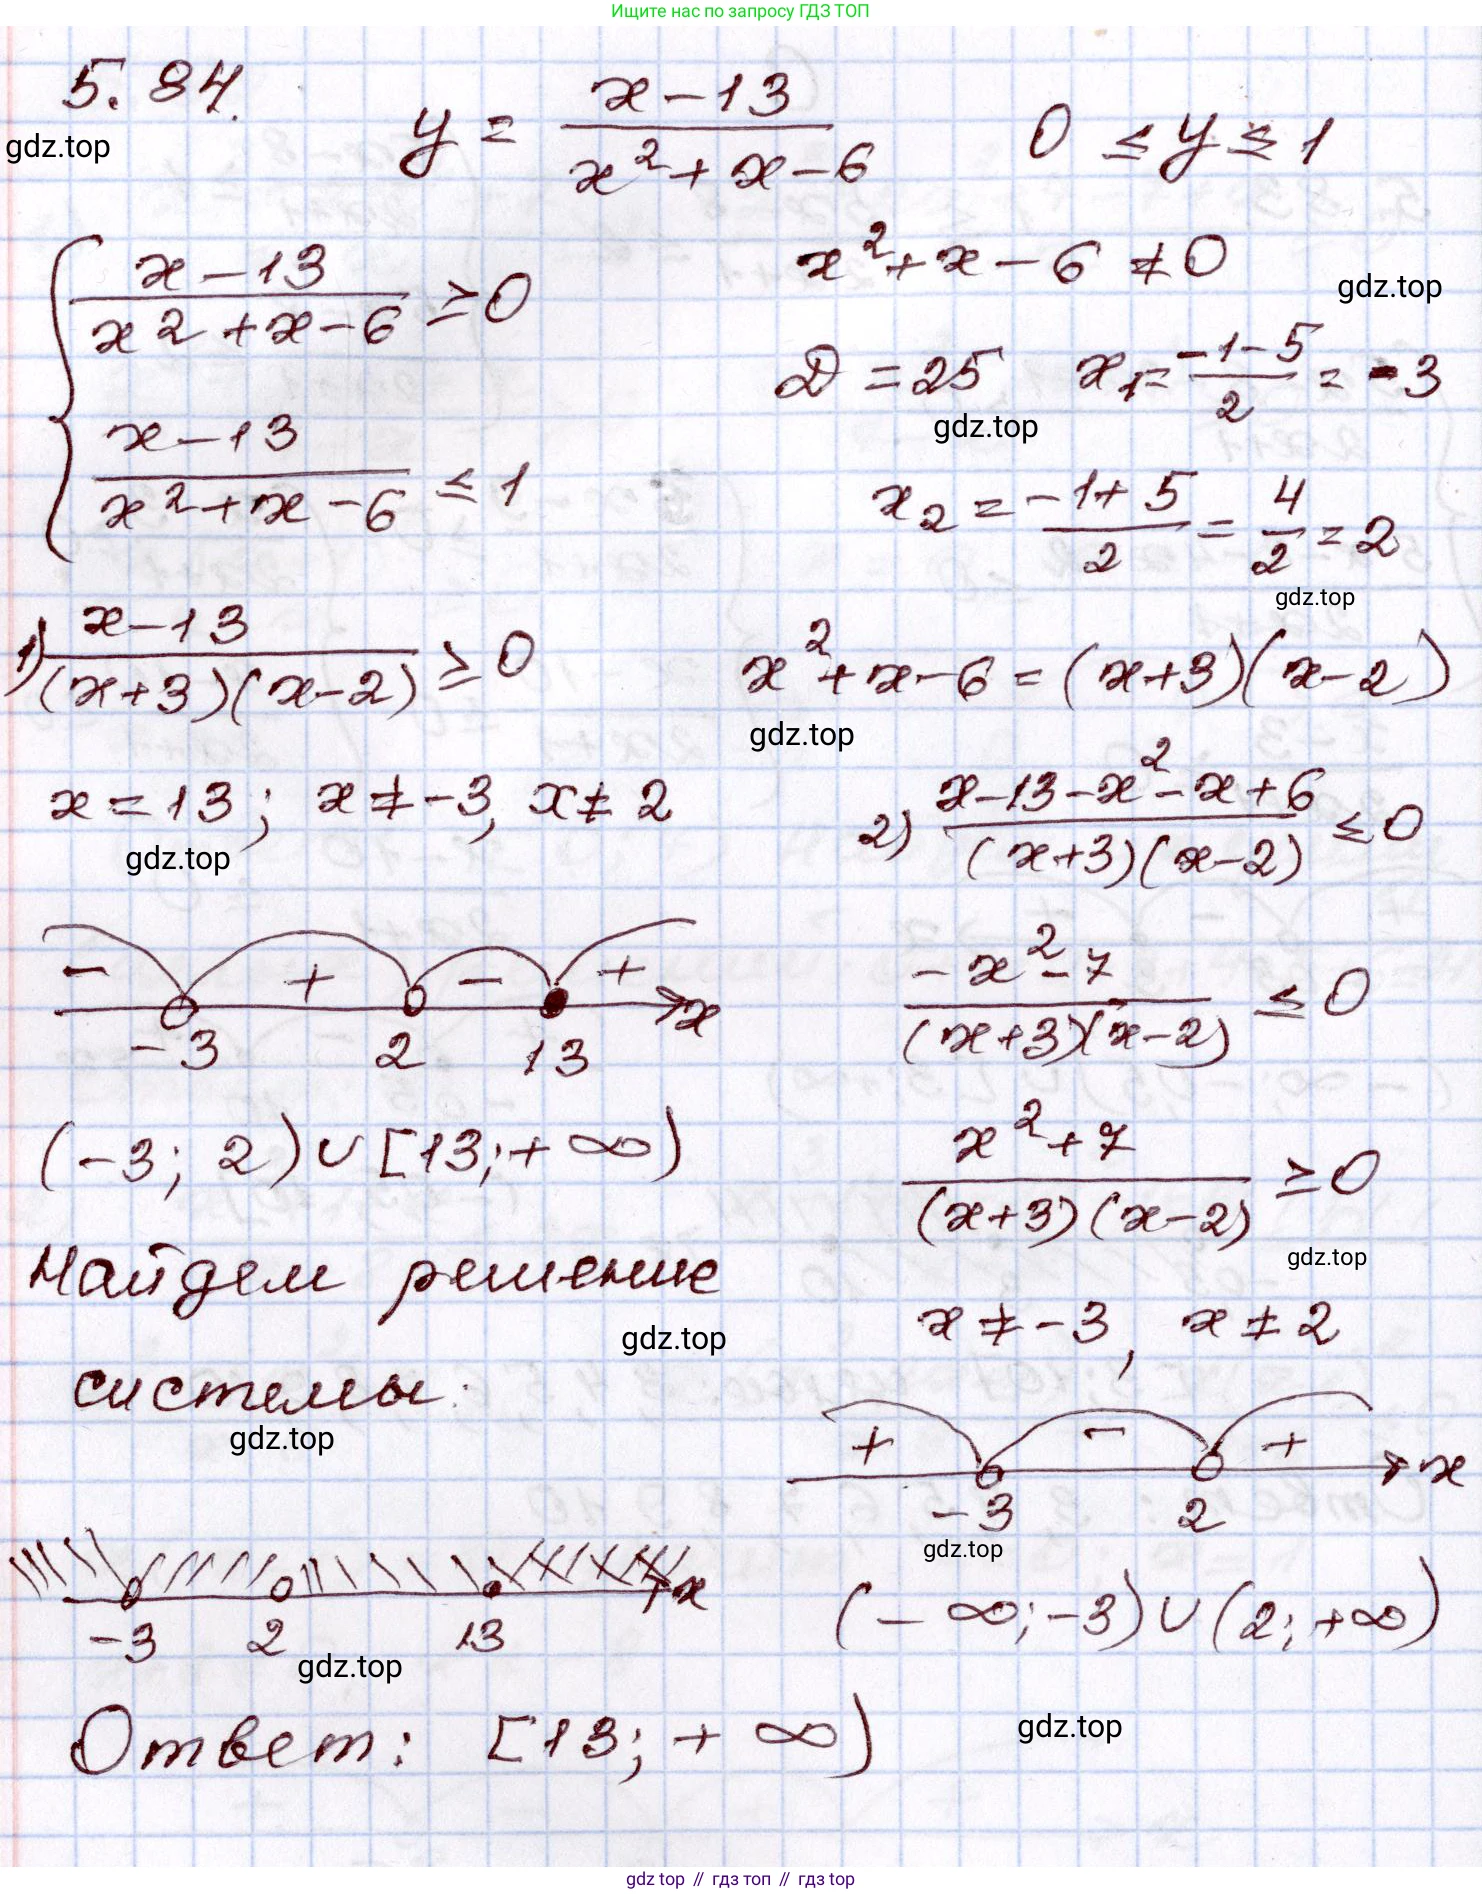 Ищите нас по запросу ГДЗ ТОП
5.84.
gdz.top
y = \frac{x-13}{x^2+x-6}    0 ≤ y ≤ 1
{ \frac{x-13}{x^2+x-6} ≥ 0
\frac{x-13}{x^2+x-6} ≤ 1
x^2+x-6 ≠ 0
gdz.top
D = 25    x_1 = \frac{-1-5}{2} = -3
gdz.top
x_2 = \frac{-1+5}{2} = \frac{4}{2} = 2
gdz.top
1) \frac{x-13}{(x+3)(x-2)} ≥ 0
x^2+x-6 = (x+3)(x-2)
gdz.top
x = 13; x ≠ -3, x ≠ 2
gdz.top
- + - + x
-3 2 13
(-3; 2) ∪ [13; +∞)
2) \frac{x-13-x^2-x+6}{(x+3)(x-2)} ≤ 0
\frac{-x^2-7}{(x+3)(x-2)} ≤ 0
\frac{x^2+7}{(x+3)(x-2)} ≥ 0
gdz.top
x ≠ -3, x ≠ 2
+ - + x
-3 2
gdz.top
(-∞; -3) ∪ (2; +∞)
Найдем решение
gdz.top
системы:
gdz.top
x
-3 2 13
gdz.top
Ответ: [13; +∞)
gdz.top
gdz top // гдз топ // гдз top